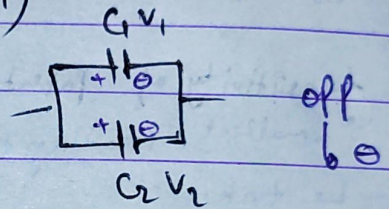 1)
C₁ V₁
+ ⊖
+ ⊖
C₂ V₂
opp
↳ ⊖